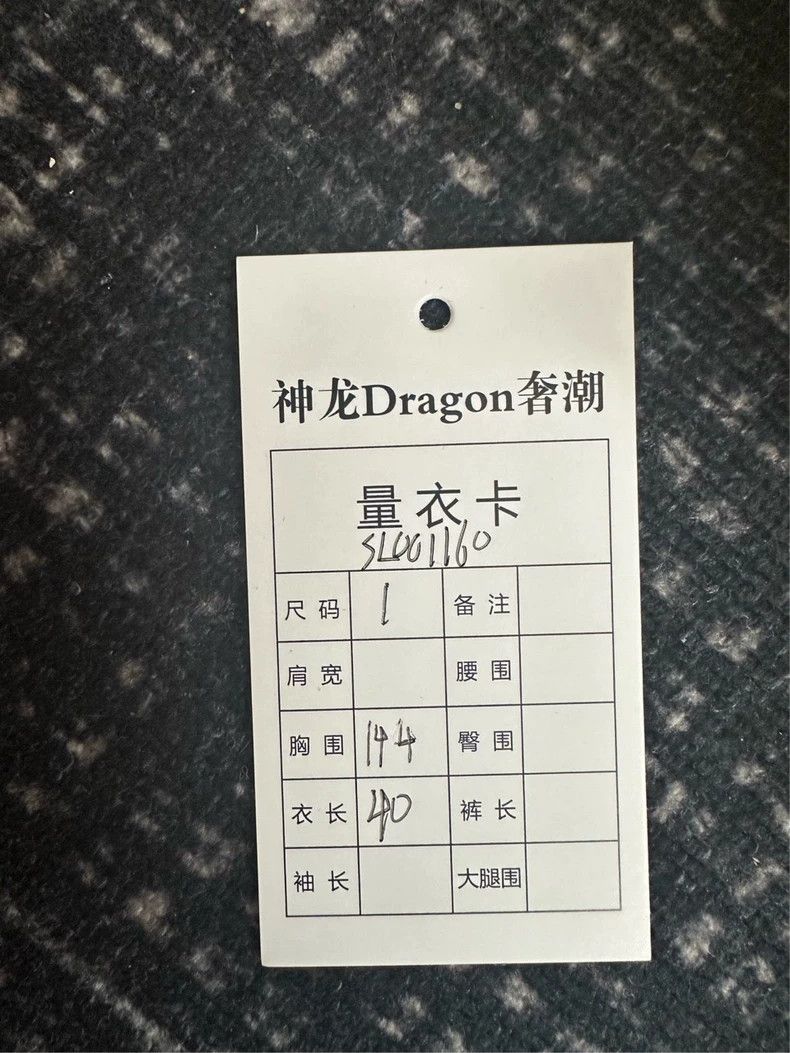 神龙Dragon奢潮
量衣卡
SL001160
尺码 1 备注
肩宽 腰围
胸围 144 臀围
衣长 40 裤长
袖长 大腿围